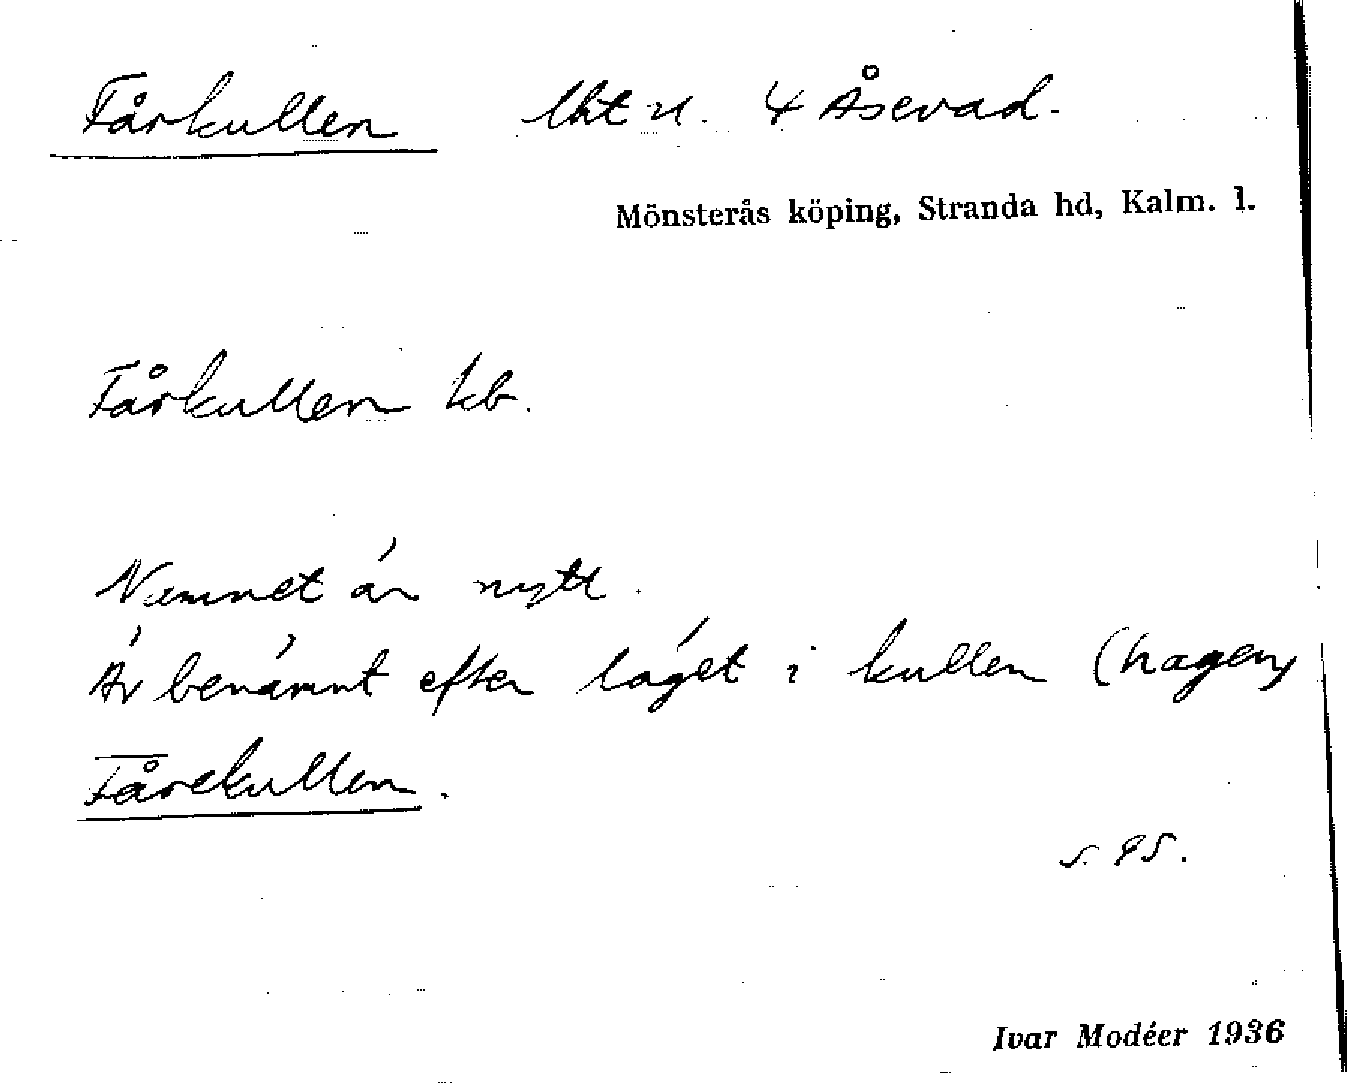 Fårkullen lht u. 4 Åsevad.
Mönsterås köping, Stranda hd, Kalm. l.
Fårkullen kb.
Namnet är nytt.
Är benämnt efter läget i kullen (hagen)
Fårekullen.
s. 95.
Ivar Modéer 1936